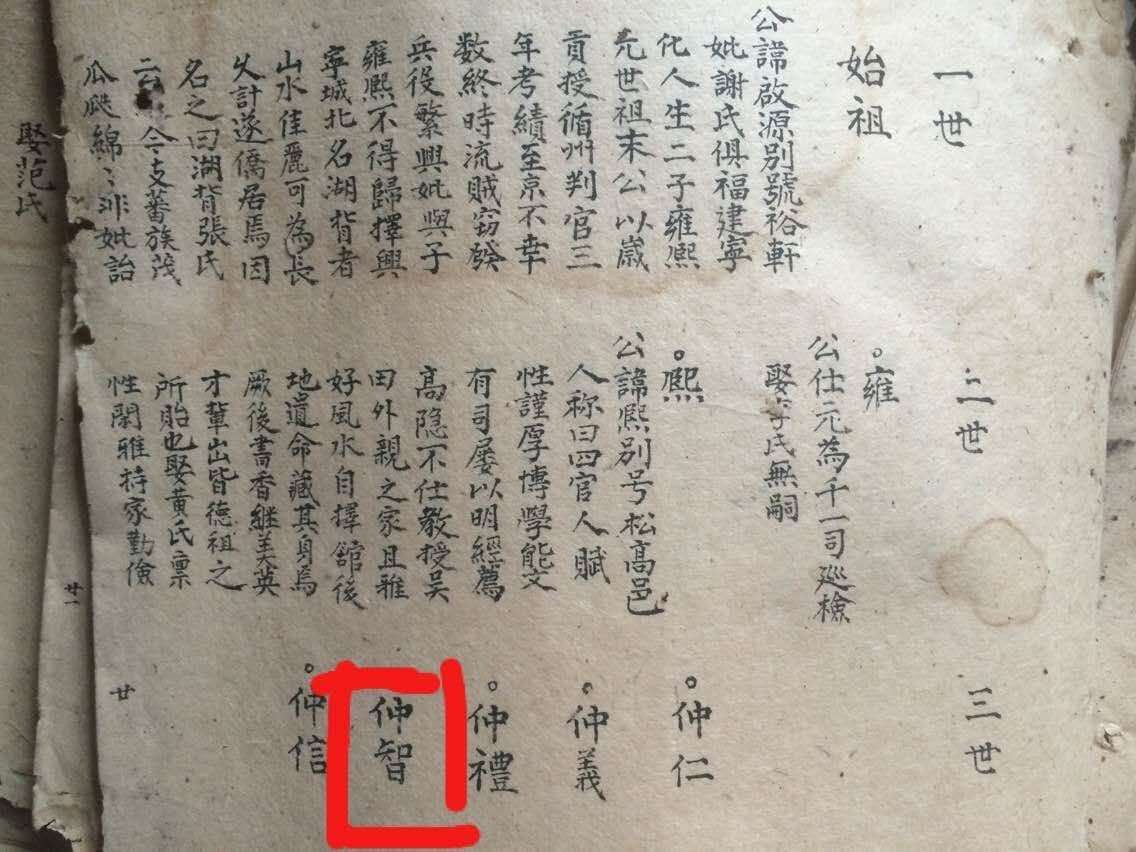 一世
始祖
公諱啟源別號裕軒
妣謝氏俱福建寧
化人生二子雍熙
元世祖末公以歲
貢授循州判官三
年考績至京不幸
数終時流賊窃發
兵役繁興妣與子
雍熙不得歸擇興
寧城北名湖背者
山水佳麗可為長
久計遂僑居焉因
名之曰湖背張氏
云今支蕃族茂
瓜瓞綿〻非妣詒
二世
雍
公仕元為千一司廵檢
娶李氏無嗣
熙
公諱熙别号松高邑
人称曰四官人賦
性謹厚博學能文
有司屡以明經薦
高隐不仕教授吴
田外親之家且雅
好風水自擇舘後
地遺命藏其身焉
厥後書香継美英
才輩出皆德祖之
所胎也娶黄氏禀
性閑雅持家勤儉
三世
仲仁
仲義
仲禮
仲智
仲信
廿
娶范氏
廿一